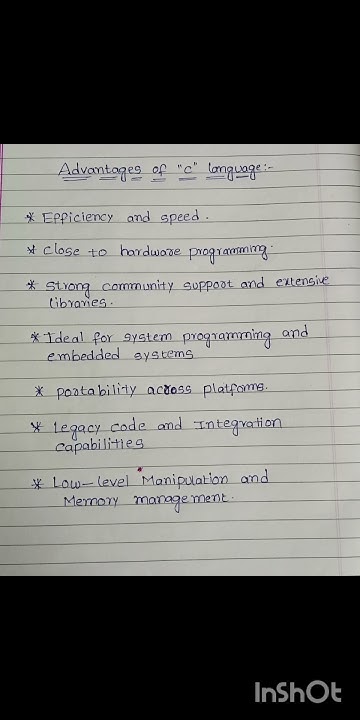 Advantages of "C" language:-
* Efficiency and speed.
* Close to hardware programming.
* Strong community support and extensive
libraries.
* Ideal for system programming and
embedded systems
* Portability across platforms.
* Legacy code and Integration
capabilities
* Low-level Manipulation and
Memory management.
InShOt